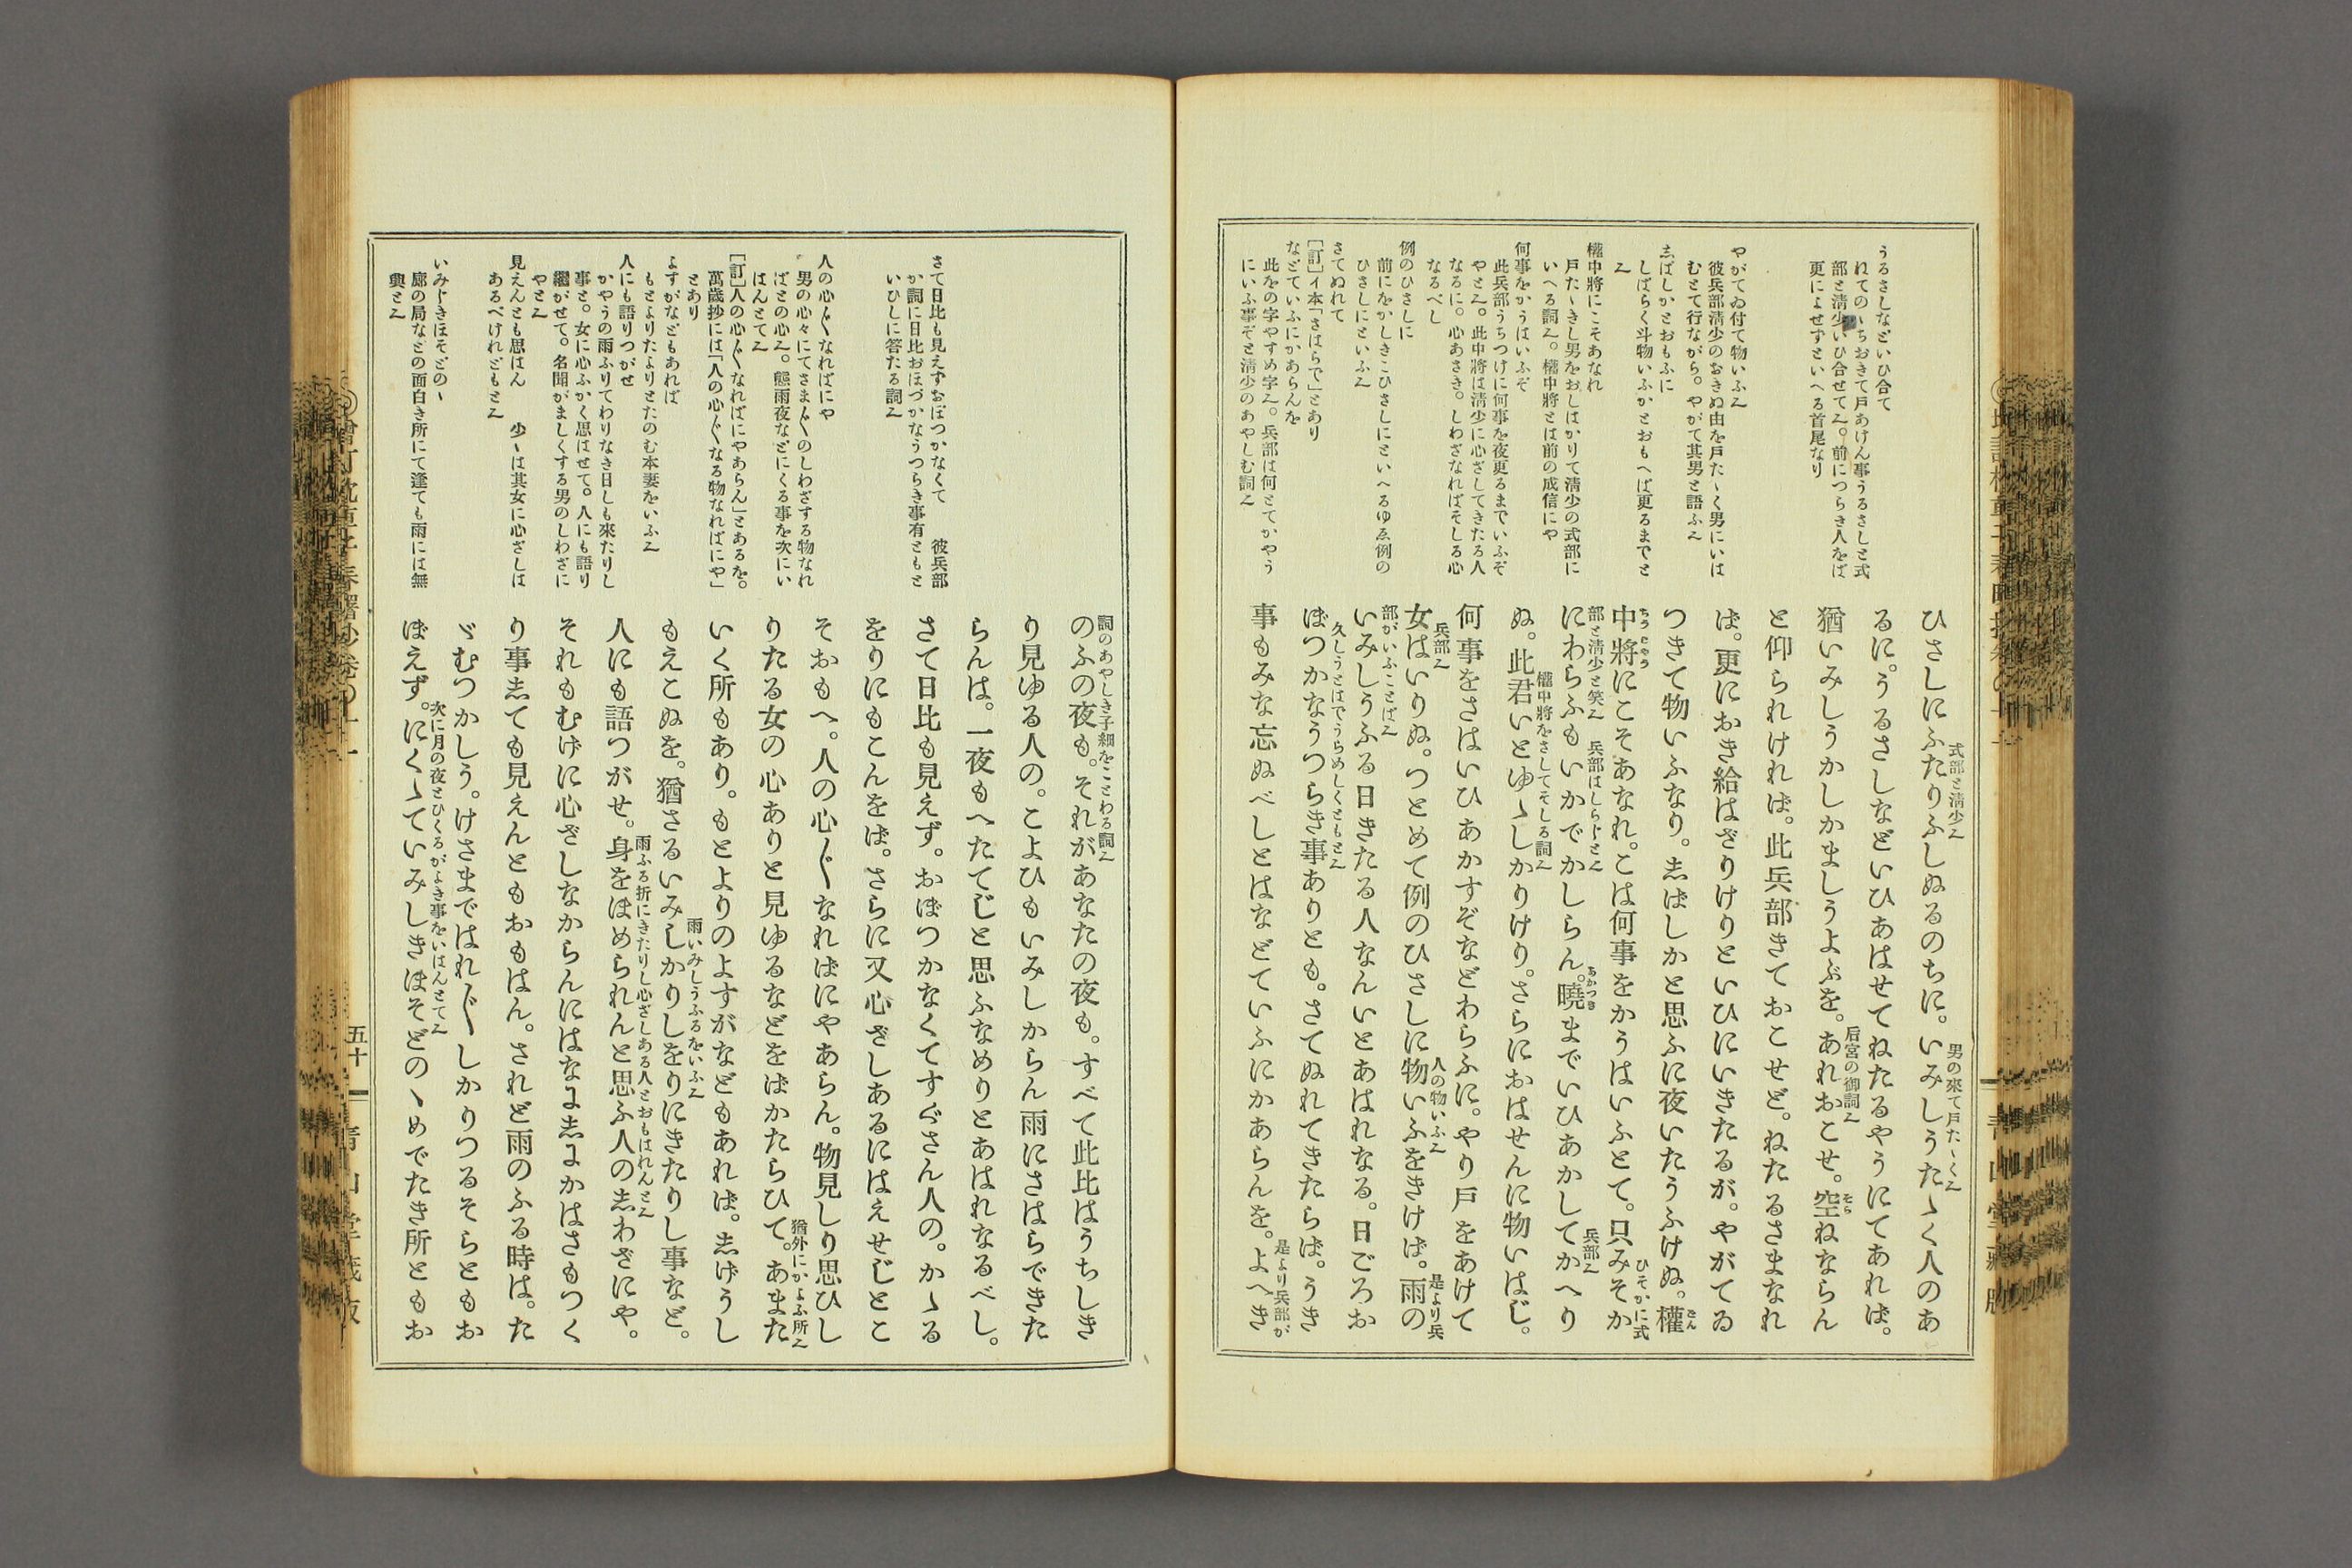 うるさしなどいひ合て
ねてのゝちおきて戸あけん事うるさしと式
部と淸少いひ合せて𛀙。前につらき人をば
更によせずといへる首尾なり
やがてゐ付て物いふ𛀙
彼兵部淸少のおきぬ由を戸たゝく男にいは
むとて行ながら。やがて其男と語ふ𛀙
志ばしかとおもふに
しばらく斗物いふかとおもへば更るまでと
𛀙
權中將にこそあなれ
戸たゝきし男をおしはかりて淸少の式部に
いへる詞𛀙。權中將とは前の成信にや
何事をかうはいふぞ
此兵部うちつけに何事を夜更るまでいふぞ
やと𛀙。此中將は淸少に心ざしてきたる人
なるに。心あさき。しわざなればそしる心
なるべし
例のひさしに
前にをかしきこひさしにといへるゆゑ例の
ひさしにといふ𛀙
さてぬれて
[訂]イ本「さはらで」とあり
などていふにかあらんを
此をの字やすめ字𛀙。兵部は何とてかやう
にいふ事ぞと淸少のあやしむ詞𛀙
式部と淸少𛀙
男の來て戸たゝく𛀙
ひさしにふたりふしぬるのちに。いみしうたゝく人のあ
るに。うるさしなどいひあはせてねたるやうにてあれば。
后宮の御詞𛀙
猶いみしうかしかましうよぶを。あれおこせ。空ねならん
と仰られければ。此兵部きておこせど。ねたるさまなれ
ば。更におき給はざりけりといひにいきたるが。やがてゐ
つきて物いふなり。志ばしかと思ふに夜いたうふけぬ。權
ひそかに式
中將にこそあなれ。こは何事をかうはいふとて。只みそか
部と淸少と笑𛀙 兵部はしらじと𛀙
兵部𛀙
にわらふもいかでかしらん。曉までいひあかしてかへり
權中將をさしてそしる詞𛀙
ぬ。此君いとゆゝしかりけり。さらにおはせんに物いはじ。
何事をさはいひあかすぞなどわらふに。やり戸をあけて
兵部𛀙
人の物いふ𛀙
是より兵
女はいりぬ。つとめて例のひさしに物いふをきけば。雨の
部がいふことば𛀙
いみしうふる日きたる人なんいとあはれなる。日ごろお
久しうとはでうらめしくともと𛀙
ぼつかなうつらき事ありとも。さてぬれてきたらば。うき
是より兵部が
事もみな忘ぬべしとはなどていふにかあらんを。よへき
さて日比も見えずおぼつかなくて 彼兵部
か詞に日比おほづかなうつらき事有ともと
いひしに答たる詞𛀙
人の心〴〵なればにや
男の心々にてさま〴〵のしわざする物なれ
ばとの心𛀙。態雨夜などにくる事を次にい
はんとて𛀙
[訂]人の心〴〵なればにやあらん」とあるを。
萬歲抄には「人の心〴〵なる物なればにや」
とあり
よすがなどもあれば
もとよりたよりとたのむ本妻をいふ𛀙
人にも語りつがせ
かやうの雨ふりてわりなき日しも來たりし
事と。女に心ふかく思はせて。人にも語り
繼がせて。名聞がましくする男のしわざに
やと𛀙
見えんとも思はん 少〻は其女に心ざしは
あるべけれどもと𛀙
いみじきほそどのゝ
廊の局などの面白き所にて逢ても雨には無
興と𛀙
詞のあやしき子細をことわる詞𛀙
のふの夜も。それがあなたの夜も。すべて此比はうちしき
り見ゆる人の。こよひもいみしからん雨にさはらできた
らんは。一夜もへたてじと思ふなめりとあはれなるべし。
さて日比も見えず。おぼつかなくてすぐさん人の。かゝる
をりにもこんをば。さらに又心ざしあるにはえせじとこ
そおもへ。人の心〴〵なればにやあらん。物見しり思ひし
猶外にかよふ所𛀙
りたる女の心ありと見ゆるなどをばかたらひて。あまた
いく所もあり。もとよりのよすがなどもあれば。志げうし
雨いみしうふるをいふ𛀙
もえこぬを。猶さるいみしかりしをりにきたりし事など。
雨ふる折にきたりし心ざしある人とおもはれんと𛀙
人にも語つがせ。身をほめられんと思ふ人の志わざにや。
それもむげに心ざしなからんにはなにしにかはさもつく
り事志ても見えんともおもはん。されど雨のふる時は。た
ゞむつかしう。けさまではれ〴〵しかりつるそらともお
次に月の夜とひくるがよき事をいはんとて𛀙
ぼえず。にくゝていみしきほそどのゝめでたき所ともお
五十一